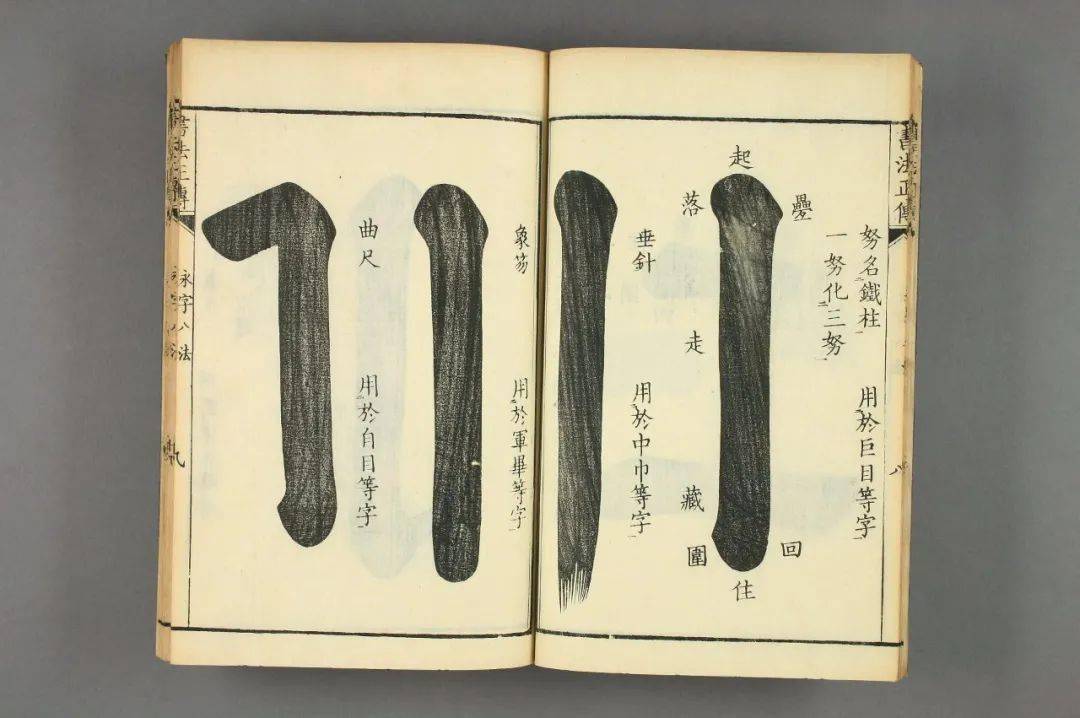 書法正傳
八
努名鐵柱
用於巨目等字
一努化三努
起
壘
落
走
藏
圍
回
住
垂針
用於中巾等字
象笏
用於軍畢等字
曲尺
用於自目等字
書法正傳
永字八法
九